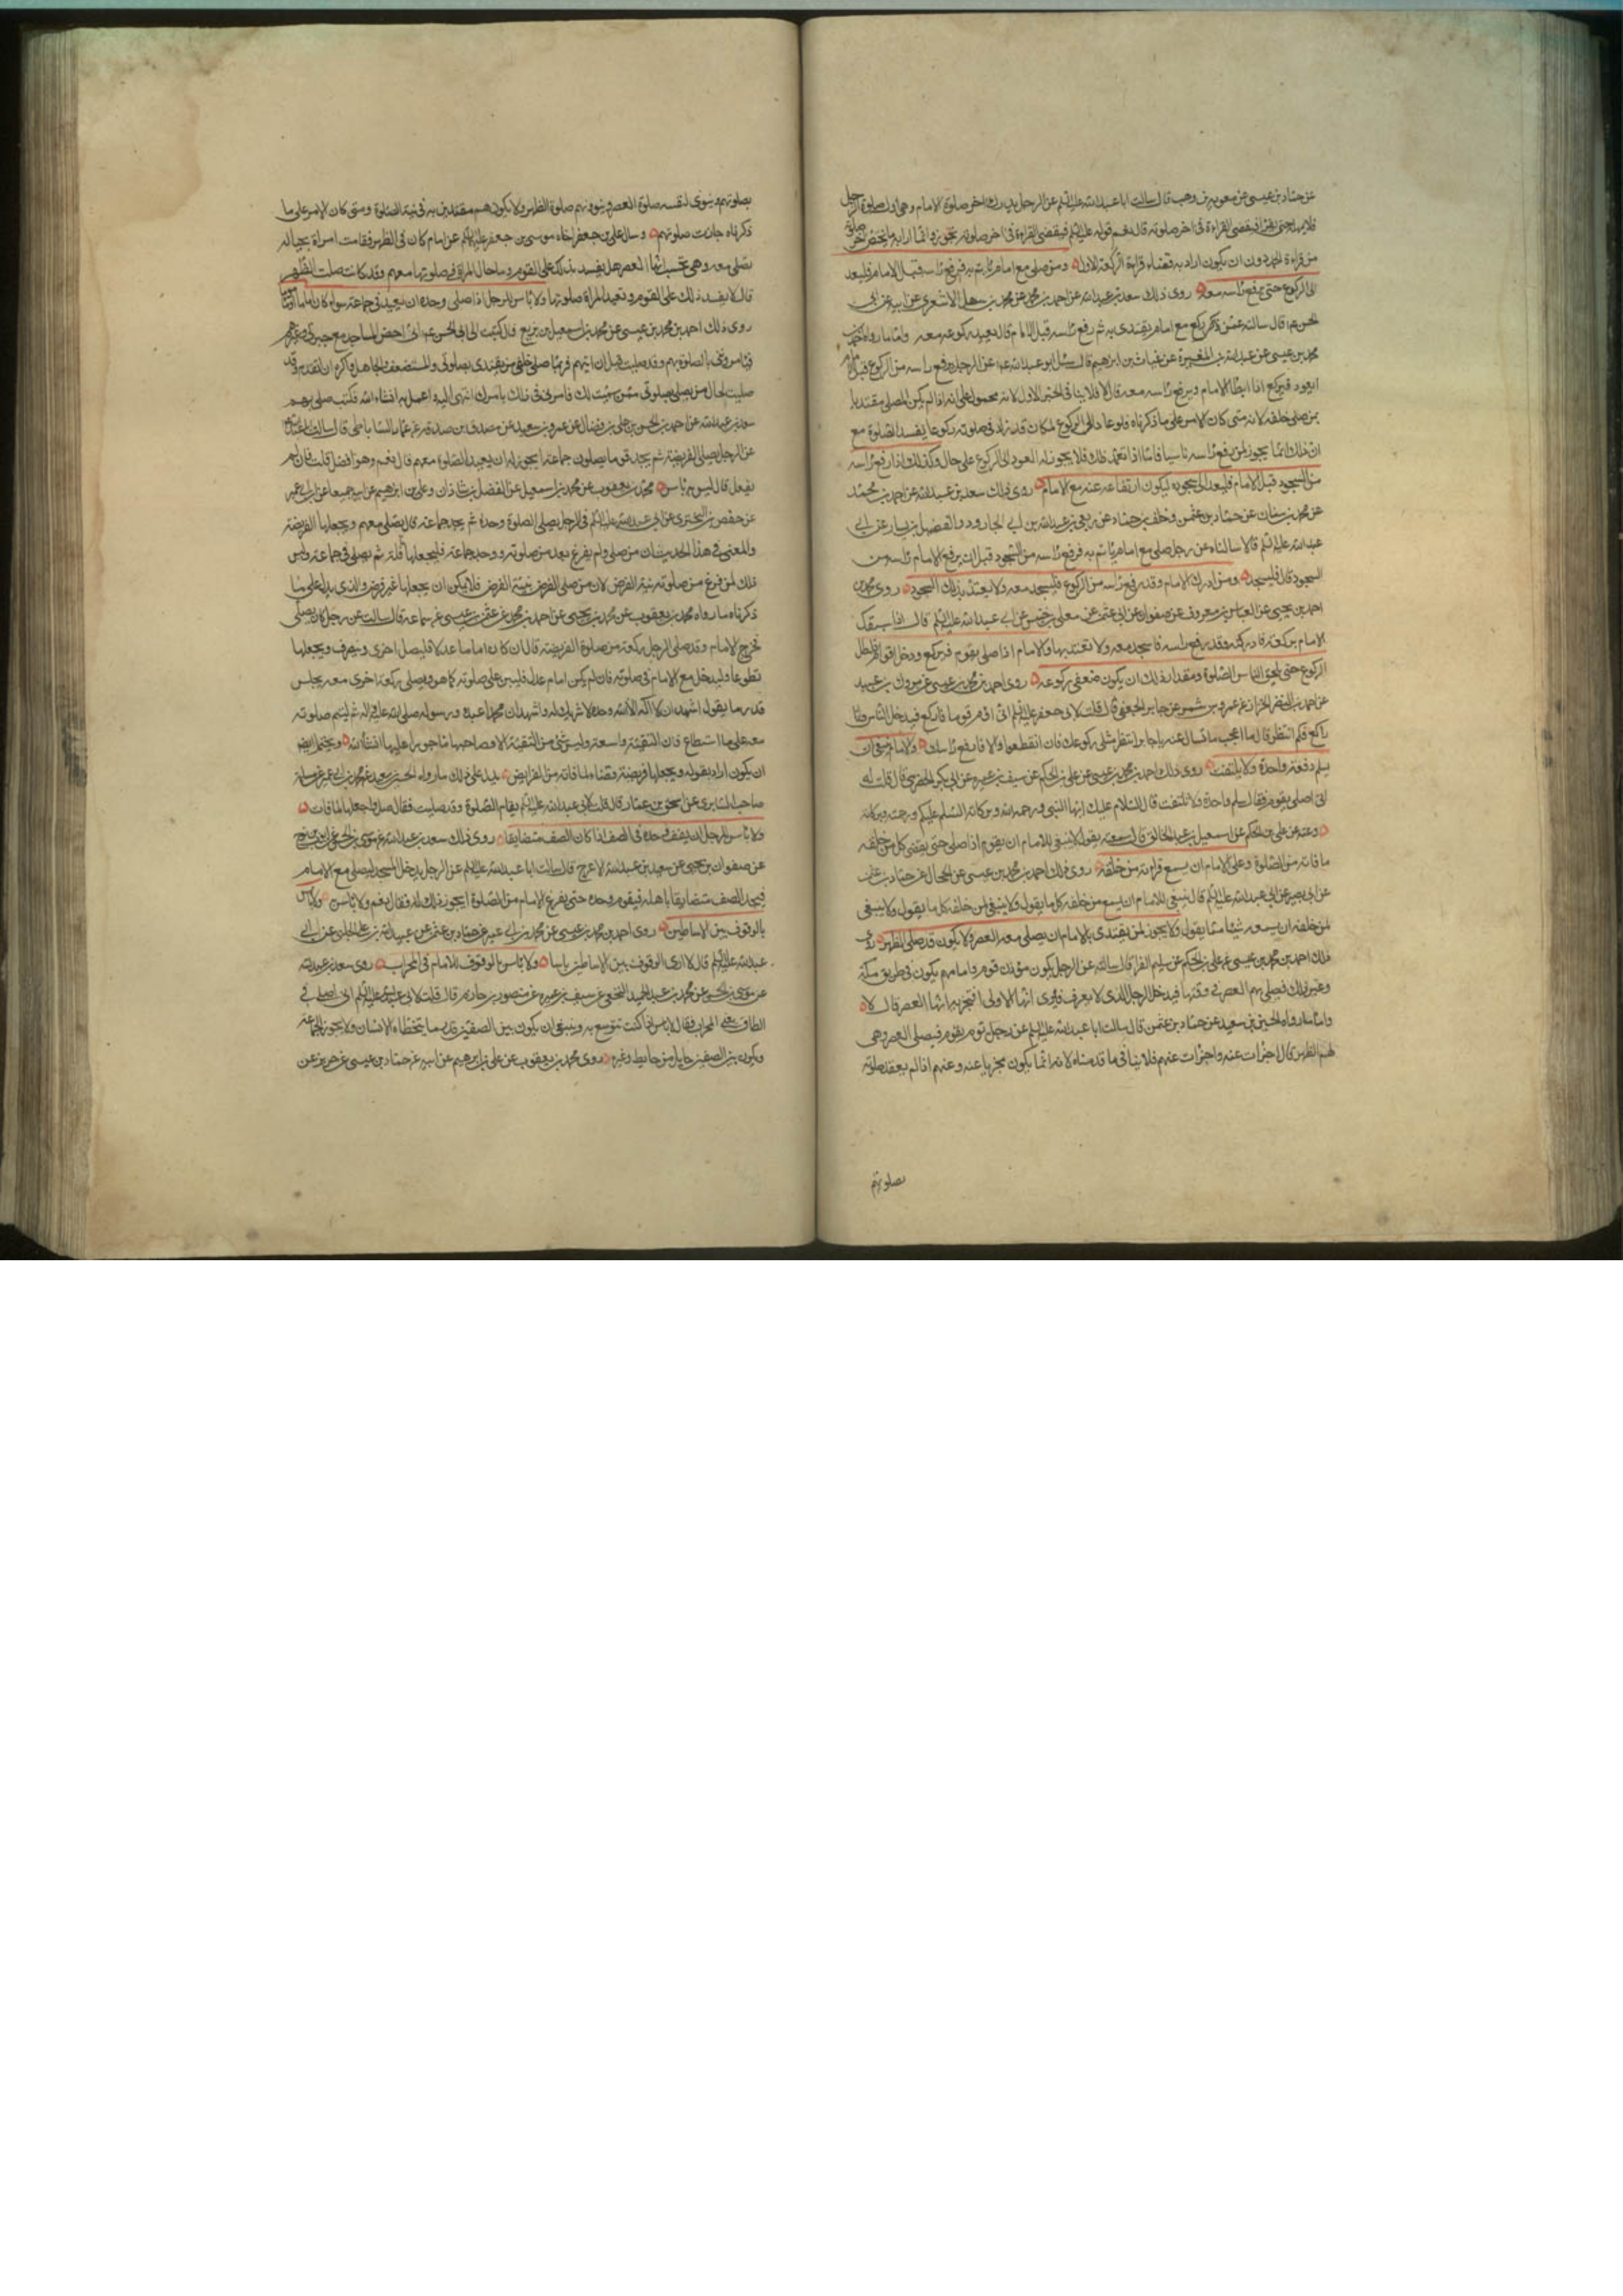 عن حماد بن عيسى عن معوية بن وهب قال سالت ابا عبدالله عليه السلم عن الرجل يدرك اخر صلوة الامام وهي اول صلوة الرجل
فلا يمهله حتى يقرا فيقضي القراءة في اخر صلوته قال نعم قوله عليه السلم فيقضي القراءة في اخر صلوته
من قراءة الحمد دون ان يكون اراد به قضاء قراءة الركعة الاولى ومن صلى مع امام ياتم به فرفع راسه قبل الامام فليعد
الى الركوع حتى يرفع راسه معه روى ذلك سعد بن عبدالله عن احمد بن محمد عن محمد بن سهل الاشعري عن ابيه عن ابي
الحسن قال سالته عمن ركع مع امام يقتدي به ثم رفع راسه قبل الامام قال يعيد ركوعه معه واما ما رواه
محمد بن عيسى عن عبدالله بن المغيرة عن غياث بن ابرهيم قال سئل ابو عبدالله عن الرجل يرفع راسه من الركوع قبل الامام
ايعود فيركع اذا ابطا الامام ويرفع راسه معه قال لا فلا ينافي الخبر الاول لانه محمول على انه اذا لم يكن المصلي مقتديا
بمن صلى خلفه لانه متى كان الامر على ما ذكرناه فلو عاد الى الركوع لكان قد زاد في صلوته ركوعا يفسد الصلوة مع
ان ذلك انما يجوز لمن يرفع راسه ناسيا فاما اذا تعمد ذلك فلا يجوز له العود الى الركوع على حال وكذلك اذا رفع راسه
من السجود قبل الامام فليعد الى سجوده ليكون ارتفاعه عنه مع الامام روى ذلك سعد بن عبدالله عن احمد بن محمد
عن محمد بن سنان عن حماد بن عثمن وخلف بن حماد عن ربعي بن عبدالله بن ابي الجارود والفضيل بن يسار عن ابي
عبدالله عليه السلم قالا سالناه عن رجل صلى مع امام ياتم به فرفع راسه من السجود قبل ان يرفع الامام راسه من
السجود قال فليسجد ومن ادرك الامام وقد رفع راسه من الركوع فليسجد معه ولا يعتد بذلك السجود روى محمد بن
احمد بن يحيى عن العباس بن معروف عن صفوان عن ابي عثمن عن معلى بن خنيس عن ابي عبدالله عليه السلم قال اذا سبقك
الامام بركعة فادركته وقد رفع راسه فاسجد معه ولا تعتد بها والامام اذا صلى بقوم فركع ودخل اقوام فليطل
الركوع حتى يلحق الناس الصلوة ومقدار ذلك ان يكون ضعفي ركوعه روى احمد بن محمد بن عيسى عن مروك بن عبيد
عن احمد بن النضر الخزاز عن عمرو بن شمر عن جابر الجعفي قال قلت لابي جعفر عليه السلم اني اؤم قوما فاركع فيدخل الناس وانا
راكع فكم انتظر قال ما اعجب ما تسال عنه يا جابر انتظر مثلي ركوعك فان انقطعوا والا فارفع راسك والامام ينبغي ان
يسلم دفعة واحدة ولا يلتفت روى ذلك احمد بن محمد بن عيسى عن علي بن الحكم عن سيف بن عميره عن ابي بكر الحضرمي قال قلت له
اني اصلي بقوم فقال سلم واحدة ولا تلتفت قل السلام عليك ايها النبي ورحمة الله وبركاته السلم عليكم ورحمة وبركاته
وعنه عن علي بن الحكم عن اسمعيل بن عبد الخالق قال سمعته يقول لا ينبغي للامام ان يقوم اذا صلى حتى يقضي كل من خلفه
ما فاته من الصلوة وعلى الامام ان يسمع قراءته من خلفه روى ذلك احمد بن محمد بن عيسى عن الحجال عن حماد بن عثمن
عن ابي بصير عن ابي عبدالله عليه السلم قال ينبغي للامام ان يسمع من خلفه كل ما يقول ولا ينبغي لمن خلفه كل ما يقول ولا ينبغي
لمن خلفه ان يسمعه شيئا مما يقول ولا يجوز لمن يقتدي بالامام ان يصلي معه العصر ولا يكون قد صلى الظهر روى
ذلك احمد بن محمد بن عيسى عن علي بن الحكم عن سليم الفرا قال سالته عن الرجل يكون مؤذن قوم وامامهم يكون في طريق مكة
وغير ذلك فيصلي بهم العصر في وقتها فيدخل الرجل الذي لا يعرف فيرى انها الاولى افتجزيه انها العصر قال لا
واما ما رواه الحسين بن سعيد عن حماد بن عثمن قال سالت ابا عبدالله عليه السلم عن رجل يؤم بقوم فيصلي العصر وهي
لهم الظهر قال اجزات عنه واجزات عنهم فلا ينافي ما قدمناه لانه انما يكون مجزيا عنه وعنهم اذا لم يعقد صلوته
بصلوتهم
بصلوتهم وينوي لنفسه صلوة العصر وينوونهم صلوة الظهر ولا يكون هم مقتدين به في نية الصلوة ومتى كان الامر على ما
ذكرناه جازت صلوتهم وسال علي بن جعفر اخاه موسى بن جعفر عليه السلم عن امام كان في الظهر فقامت امراة بحياله
تصلي معه وهي تحسب انها العصر هل يفسد ذلك على القوم وما حال المراة في صلوتها معهم وقد كانت صلت الظهر
قال لا يفسد ذلك على القوم وتعيد المراة صلوتها ولا باس للرجل اذا صلى وحده ان يعيد في جماعة سواء كان اماما او ماموما
روى ذلك احمد بن محمد بن عيسى عن محمد بن اسمعيل بن بزيع قال كتبت الى ابي الحسن اني احضر المساجد مع جيرتي وغيرهم
فيامروني بالصلوة بهم وقد صليت قبل ان اتيهم فربما صلى خلفي من يقتدي بصلوتي والمستضعف والجاهل واكره ان اتقدم وقد
صليت لحال من يصلي بصلوتي ممن سميت لك فامرني في ذلك بامرك انتهي اليه واعمل به ان شاء الله فكتب صلى بهم
سعد بن عبدالله عن احمد بن الحسن بن علي بن فضال عن عمرو بن سعيد عن مصدق بن صدقة عن عمار الساباطي قال سالت
عن الرجل يصلي الفريضة ثم يجد قوما يصلون جماعة ايجوز له ان يعيد الصلوة معهم قال نعم وهو افضل قلت فان لم
يفعل قال ليس به باس محمد بن يعقوب عن محمد بن اسمعيل عن الفضل بن شاذان وعلي بن ابرهيم عن ابيه جميعا عن ابن ابي عمير
عن حفص بن البختري عن ابي عبدالله عليه السلم في الرجل يصلي الصلوة وحده ثم يجد جماعة قال يصلي معهم ويجعلها الفريضة
والمعنى في هذا الحديث ان من صلى ولم يفرغ بعد من صلوته ووجد جماعة فليجعلها نافلة ثم يصلي في جماعة وليس
ذلك لمن فرغ من صلوته بنية الفرض لان من صلى الفرض بنية الفرض فلا يمكن ان يجعلها غير فرض والذي يدل على ما
ذكرناه ما رواه محمد بن يعقوب عن محمد بن يحيى عن احمد بن محمد عن عثمن بن عيسى عن سماعة قال سالته عن رجل كان يصلي
فخرج الامام وقد صلى الرجل ركعة من صلوة الفريضة قال ان كان اماما عدلا فليصل اخرى وينصرف ويجعلها
تطوعا وليدخل مع الامام في صلوته فان لم يكن امام عدل فليبن على صلوته كما هو ويصلي ركعة اخرى معه يجلس
قدر ما يقول اشهد ان لا اله الا الله وحده لا شريك له واشهد ان محمدا عبده ورسوله صلى الله عليه واله ثم ليتم صلوته
معه على ما استطاع فان التقية واسعة وليس شئ من التقية الا وصاحبها ماجور عليها انشاء الله ويحتمل ايضا
ان يكون اراد بقوله ويجعلها فريضة وقضاء لما فاته من الفرايض يدل على ذلك ما رواه الحسين بن سعيد عن محمد بن ابي عمير عن سلمة
صاحب السابري عن اسحق بن عمار قال قلت لابي عبدالله عليه السلم يقام الصلوة وقد صليت فقال صل واجعلها لما فات
ولا باس للرجل ان يقف وحده في الصف اذا كان الصف متضايقا روى ذلك سعد بن عبدالله عن موسى بن الحسن عن ايوب بن نوح
عن صفوان بن يحيى عن سعيد بن عبدالله الاعرج قال سالت ابا عبدالله عليه السلم عن الرجل يدخل المسجد ليصلي مع الامام
فيجد الصف متضايقا باهله فيقوم وحده حتى يفرغ الامام من الصلوة ايجوز ذلك له فقال نعم ولا باس ولا باس
بالوقوف بين الاساطين روى احمد بن محمد بن عيسى عن محمد بن ابي عمير عن حماد بن عثمن عن عبيدالله بن علي الحلبي عن ابي
عبدالله عليه السلم قال لا ارى الوقوف بين الاساطين باسا ولا باس بالوقوف للامام في المحراب روى سعد بن عبدالله
عن موسى بن الحسن عن محمد بن عبد الحميد النخعي عن سيف بن عميره عن منصور بن حازم قال قلت لابي عبدالله عليه السلم اني اصلي في
الطاق يعني المحراب فقال لا باس اذا كنت تتوسع به وينبغي ان يكون بين الصفين قدر ما يتخطاه الانسان ولا يجوز الجماعة
ويكون بين الصفين حايل من حايط وغيره روى محمد بن يعقوب عن علي بن ابرهيم عن ابيه عن حماد بن عيسى عن حريز عن